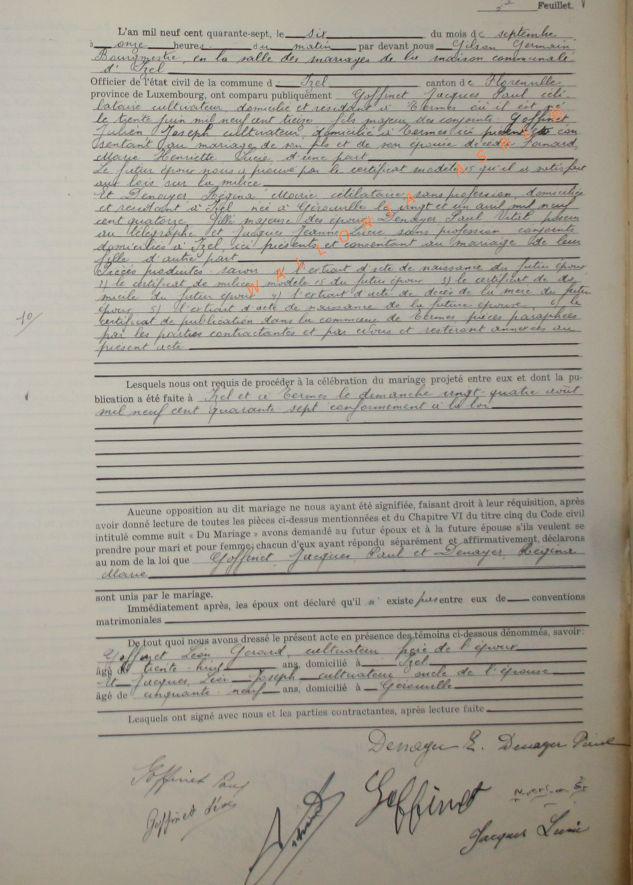 Feuillet.
L'an mil neuf cent quarante-sept, le six du mois de septembre
à onze heures du matin par devant nous Gilson Germain
Bourgmestre en la salle des mariages de la maison communale
d'Izel
Officier de l'état civil de la commune d'Izel canton de Florenville
province de Luxembourg, ont comparu publiquement Goffinet Jacques Paul céli-
bataire cultivateur domicilié et résidant à Termes où il est né
le trente juin mil neuf cent treize fils majeur des conjoints Goffinet
Julien Joseph cultivateur, domicilié à Termes ici présent et con
sentant au mariage de son fils et de son épouse décédée
Marie Henriette Lucie d'une part
Le futur époux nous a prouvé par le certificat modèle 15 qu'il a satisfait
aux lois sur la milice
Et Denayer Régina Marie célibataire sans profession, domiciliée
et résidant à Izel née à Gérouville le vingt et un avril mil neuf
cent quatorze fille majeure des époux Denayer Paul
au télégraphe et Jacques Jeanne Lucie sans profession conjoints
domiciliés à Izel ici présents et consentant au mariage de leur
fille d'autre part
Pièces produites savoir 1) l'extrait d'acte de naissance du futur époux
2) le certificat de milice modèle 15 du futur époux 3) le certificat de do
micile du futur époux 4) l'extrait d'acte de décès de la mère du futur
époux 5) l'extrait d'acte de naissance de la future épouse 6) le
certificat de publication dans la commune de Termes pièces paraphées
par les parties contractantes et par nous et resteront annexées au
présent acte
10/
Lesquels nous ont requis de procéder à la célébration du mariage projeté entre eux et dont la pu-
blication a été faite à Izel et à Termes le dimanche vingt-quatre août
mil neuf cent quarante sept conformément à la loi
Aucune opposition au dit mariage ne nous ayant été signifiée, faisant droit à leur réquisition, après
avoir donné lecture de toutes les pièces ci-dessus mentionnées et du Chapitre VI du titre cinq du Code civil
intitulé comme suit « Du Mariage » avons demandé au futur époux et à la future épouse s'ils veulent se
prendre pour mari et pour femme; chacun d'eux ayant répondu séparément et affirmativement, déclarons
au nom de la loi que Goffinet Jacques Paul et Denayer Régina
Marie
sont unis par le mariage.
Immédiatement après, les époux ont déclaré qu'il n'existe pas entre eux de conventions
matrimoniales
De tout quoi nous avons dressé le présent acte en présence des témoins ci-dessous dénommés, savoir:
Goffinet Léon Gérard, cultivateur frère de l'époux
âgé de trente huit ans, domicilié à Izel
et Jacques Léon Joseph cultivateur oncle de l'épouse
âgé de cinquante neuf ans, domicilié à Gérouville
Lesquels ont signé avec nous et les parties contractantes, après lecture faite
Denayer R. Denayer Paul
Goffinet Paul Goffinet
Goffinet Léon
Jacques Lucie